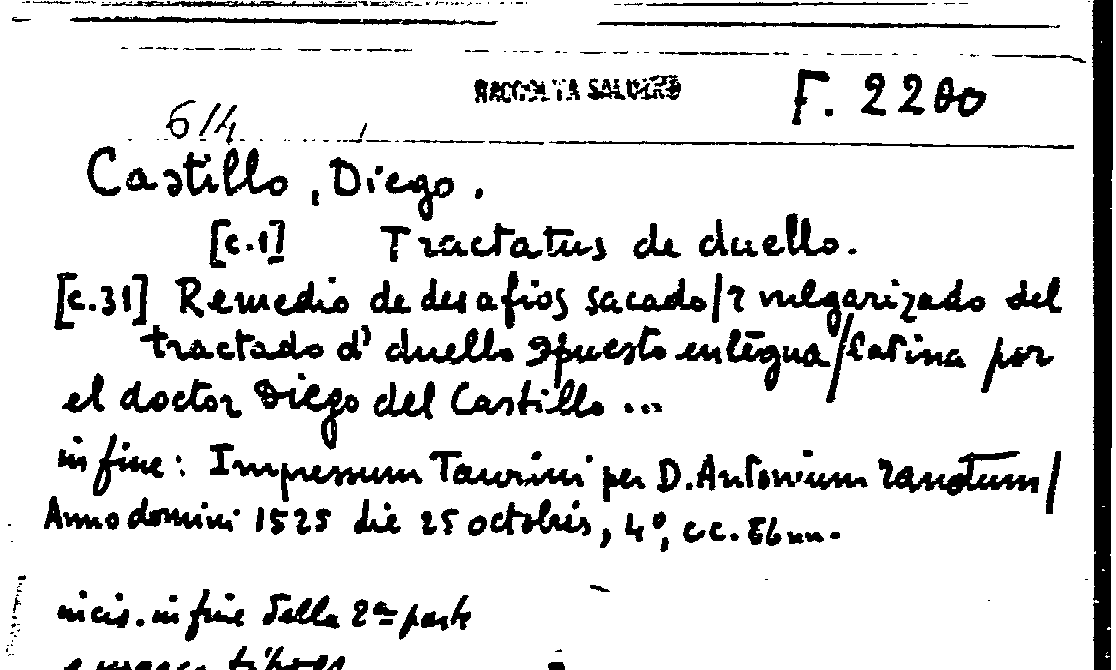 RACCOLTA SALUZZO F. 2200
614
Castillo, Diego.
[c.1] Tractatus de duello.
[c.31] Remedio de desafios sacado/ ⁊ vulgarizado del
tractado d' duello ꝯpuesto en lēgua/latina por
el doctor Diego del Castillo ...
in fine: Impressum Taurini per D. Antonium ranotum/
Anno domini 1525 die 25 octobris, 4°, cc. 56 nn.
incis. in fine della 2ª parte
e marca